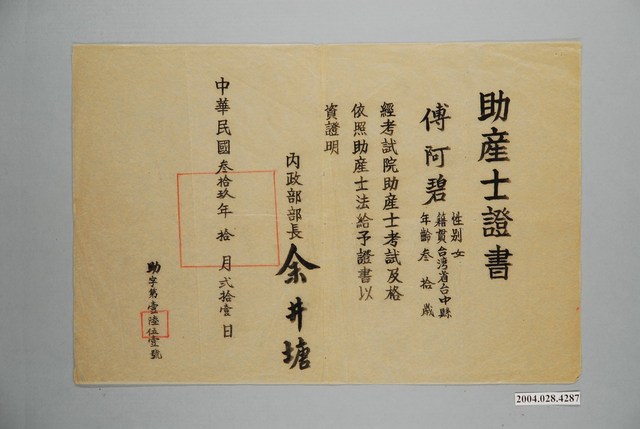 助產士證書
傅阿碧
性別女
籍貫台灣省台中縣
年齡叁拾歲
經考試院助產士考試及格
依照助產士法給予證書以
資證明
內政部部長余井塘
中華民國叁拾玖年拾月弍拾壹日
助字第壹陸伍壹號
2004.028.4287